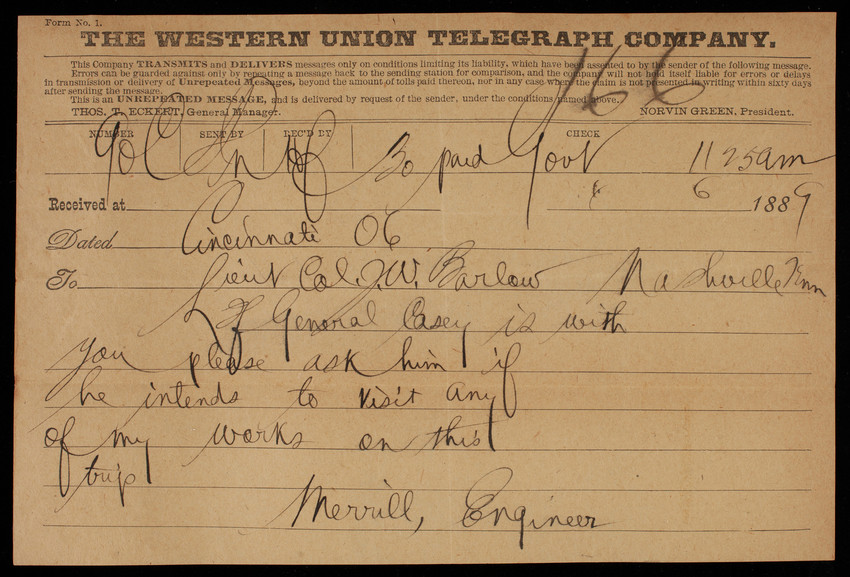 Form No. 1.
THE WESTERN UNION TELEGRAPH COMPANY.
This Company TRANSMITS and DELIVERS messages only on conditions limiting its liability, which have been assented to by the sender of the following message.
Errors can be guarded against only by repeating a message back to the sending station for comparison, and the company will not hold itself liable for errors or delays
in transmission or delivery of Unrepeated Messages, beyond the amount of tolls paid thereon, nor in any case when the claim is not presented in writing within sixty days
after sending the message.
This is an UNREPEATED MESSAGE, and is delivered by request of the sender, under the conditions named above.
THOS. T. ECKERT, General Manager. NORVIN GREEN, President.
NUMBER SENT BY REC'D BY CHECK
30 paid Govt 11 25am
Received at 6 1889
Dated Cincinnati O 6
To Lieut Col. J.W. Barlow Nashville Tenn
If General Casey is with
you please ask him if
he intends to visit any
of my works on this
trip
Merrill, Engineer